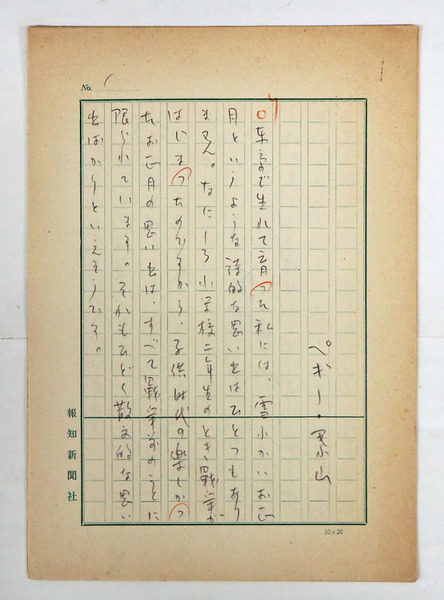 No. 1
ペギー・葉山
東京で生れて育った私には、雪ふかいお正
月というような詩的な思い出はひとつもあり
ません。なにしろ小学校二年生のとき戦争が
はじまったのですから、子供時代の楽しかっ
たお正月の思い出は、すべて戦争前のことに
限られています。それもひどく散文的な思い
出ばかりといえそうです。
報知新聞社
10×20